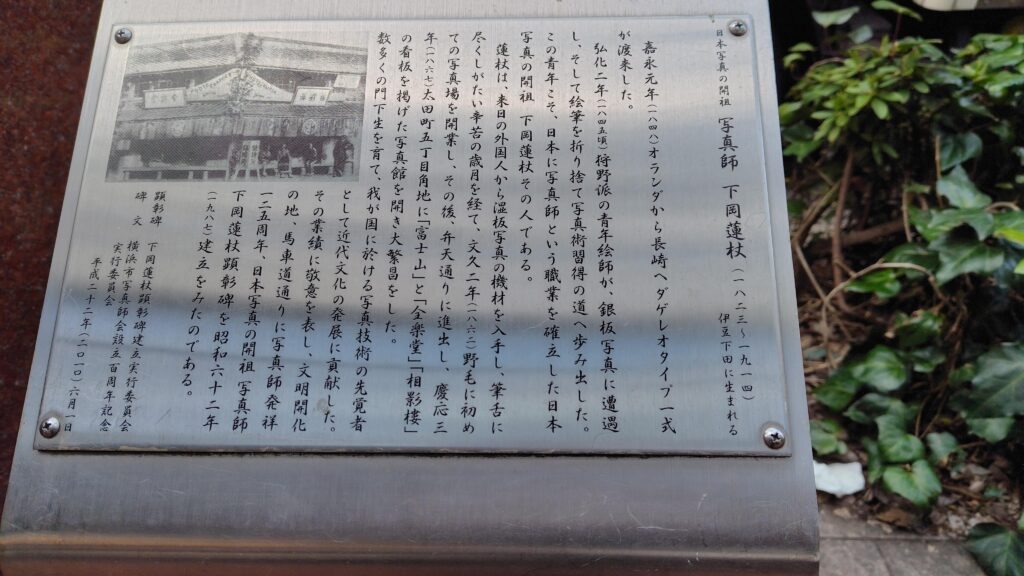 日本写真の開祖 写真師 下岡蓮杖 (一八二三〜一九一四)
伊豆下田に生まれる
嘉永元年(一八四八)オランダから長崎へダゲレオタイプ一式
が渡来した。
弘化二年(一八四五頃)狩野派の青年絵師が、銀板写真に遭遇
し、そして絵筆を折り捨て写真術習得の道へ歩み出した。
この青年こそ、日本に写真師という職業を確立した日本
写真の開祖 下岡蓮杖その人である。
蓮杖は、来日の外国人から湿板写真の機材を入手し、筆舌に
尽くしがたい辛苦の歳月を経て、文久二年(一八六二)野毛に初め
ての写真場を開業し、その後、弁天通りに進出し、慶応三
年(一八六七)太田町五丁目角地に「富士山」と「全楽堂」「相影楼」
の看板を掲げた写真館を開き大繁昌をした。
数多くの門下生を育て、我が国に於ける写真技術の先覚者
として近代文化の発展に貢献した。
その業績に敬意を表し、文明開化
の地、馬車道通りに写真師発祥
一二五周年、日本写真の開祖 写真師
下岡蓮杖顕彰碑を昭和六十二年
(一九八七)建立をみたのである。
顕彰碑 下岡蓮杖顕彰碑建立実行委員会
碑文 横浜市写真師会設立百周年記念
実行委員会
平成二十二年(二〇一〇)六月一日